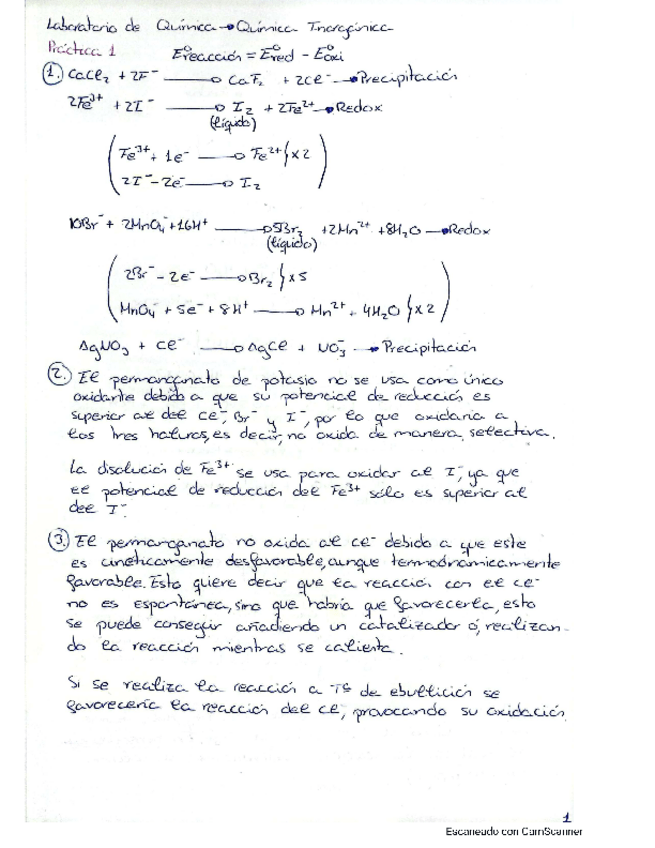 Laboratorio de Química → Química Inorgánica
Práctica 1 E°reacción = E°red - E°oxi
1. CaCl₂ + 2F⁻ → CaF₂ + 2Cl⁻ → Precipitación
2Fe³⁺ + 2I⁻ → I₂ + 2Fe²⁺ → Redox
(líquido)
Fe³⁺ + 1e⁻ → Fe²⁺ } x2
2I⁻ - 2e⁻ → I₂
10Br⁻ + 2MnO₄⁻ + 16H⁺ → 5Br₂ + 2Mn²⁺ + 8H₂O → Redox
(líquido)
2Br⁻ - 2e⁻ → Br₂ } x5
MnO₄⁻ + 5e⁻ + 8H⁺ → Mn²⁺ + 4H₂O } x2
AgNO₃ + Cl⁻ → AgCl + NO₃⁻ → Precipitación
2. El permanganato de potasio no se usa como único
oxidante debido a que su potencial de reducción es
superior al del Cl⁻, Br⁻ y I⁻, por lo que oxidaría a
los tres haluros, es decir, no oxida de manera selectiva.
La disolución de Fe³⁺ se usa para oxidar al I⁻, ya que
el potencial de reducción del Fe³⁺ sólo es superior al
del I⁻.
3. El permanganato no oxida al Cl⁻ debido a que este
es cinéticamente desfavorable, aunque termodinámicamente
favorable. Esto quiere decir que la reacción con el Cl⁻
no es espontánea, sino que habría que favorecerla, esto
se puede conseguir añadiendo un catalizador ó, realizan-
do la reacción mientras se calienta.
Si se realiza la reacción a Tª de ebullición se
favorecería la reacción del Cl⁻, provocando su oxidación
1
Escaneado con CamScanner